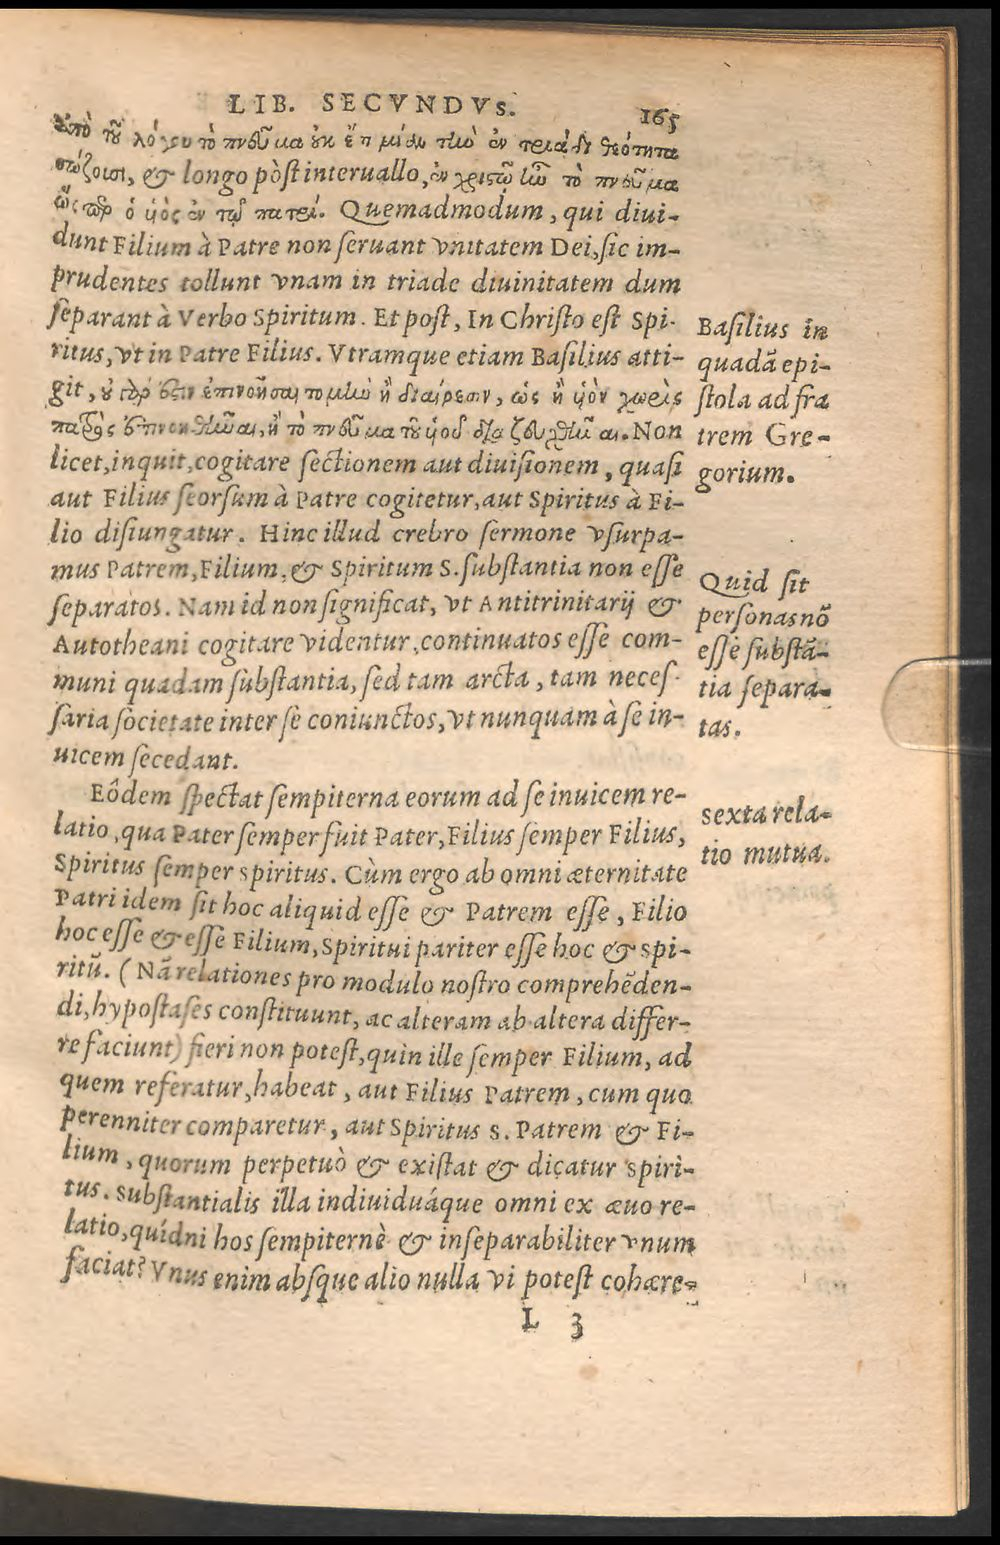 LIB. SECVNDVS.
165
ἀπὸ τοῦ λόγου τὸ πνεῦμα οὐκ ἔτι μίαν τὴν ἐν τριάδι θεότητα
σώζουσι, & longo pòst interuallo, ἐν χριστῷ ἦν τὸ πνεῦμα
ὥσπερ ὁ υἱὸς ἐν τῷ πατρί. Quemadmodum, qui diui-
dunt Filium à Patre non seruant vnitatem Dei, sic im-
prudentes tollunt vnam in triade diuinitatem dum
separant à Verbo Spiritum. Et post, In Christo est Spi-
ritus, vt in Patre Filius. Vtramque etiam Basilius atti-
git, οὐ γάρ ἐστιν ἐπινοῆσαι τομὴν ἢ διαίρεσιν, ὡς ἢ υἱὸν χωρὶς
πατρὸς ἐπινοηθῆναι, ἢ τὸ πνεῦμα τοῦ υἱοῦ διαζευχθῆναι. Non
licet, inquit, cogitare sectionem aut diuisionem, quasi
aut Filius seorsum à Patre cogitetur, aut Spiritus à Fi-
lio disiungatur. Hinc illud crebro sermone vsurpa-
mus Patrem, Filium, & Spiritum S. substantia non esse
separatos. Nam id non significat, vt Antitrinitarij &
Autotheani cogitare videntur, continuatos esse com-
muni quadam substantia, sed tam arcta, tam neces-
saria societate inter se coniunctos, vt nunquam à se in-
uicem secedant.
Eôdem spectat sempiterna eorum ad se inuicem re-
latio, qua Pater semper fuit Pater, Filius semper Filius,
Spiritus semper spiritus. Cùm ergo ab omni æternitate
Patri idem sit hoc aliquid esse & Patrem esse, Filio
hoc esse & esse Filium, Spiritui pariter esse hoc & spi-
ritũ. (Nã relationes pro modulo nostro comprehẽden-
di, hypostases constituunt, ac alteram ab altera differ-
re faciunt) fieri non potest, quin ille semper Filium, ad
quem referatur, habeat, aut Filius Patrem, cum quo
perenniter comparetur, aut Spiritus s. Patrem & Fi-
lium, quorum perpetuò & existat & dicatur spiri-
tus. substantialis illa indiuiduáque omni ex æuo re-
latio, quídni hos sempiternè & inseparabiliter vnum
faciat? Vnus enim absque alio nulla vi potest cohære-
L 3
Basilius in
quadã epi-
stola ad fra
trem Gre-
gorium.
Quid sit
personas nõ
esse substã-
tia separa-
tas.
sexta rela-
tio mutua.